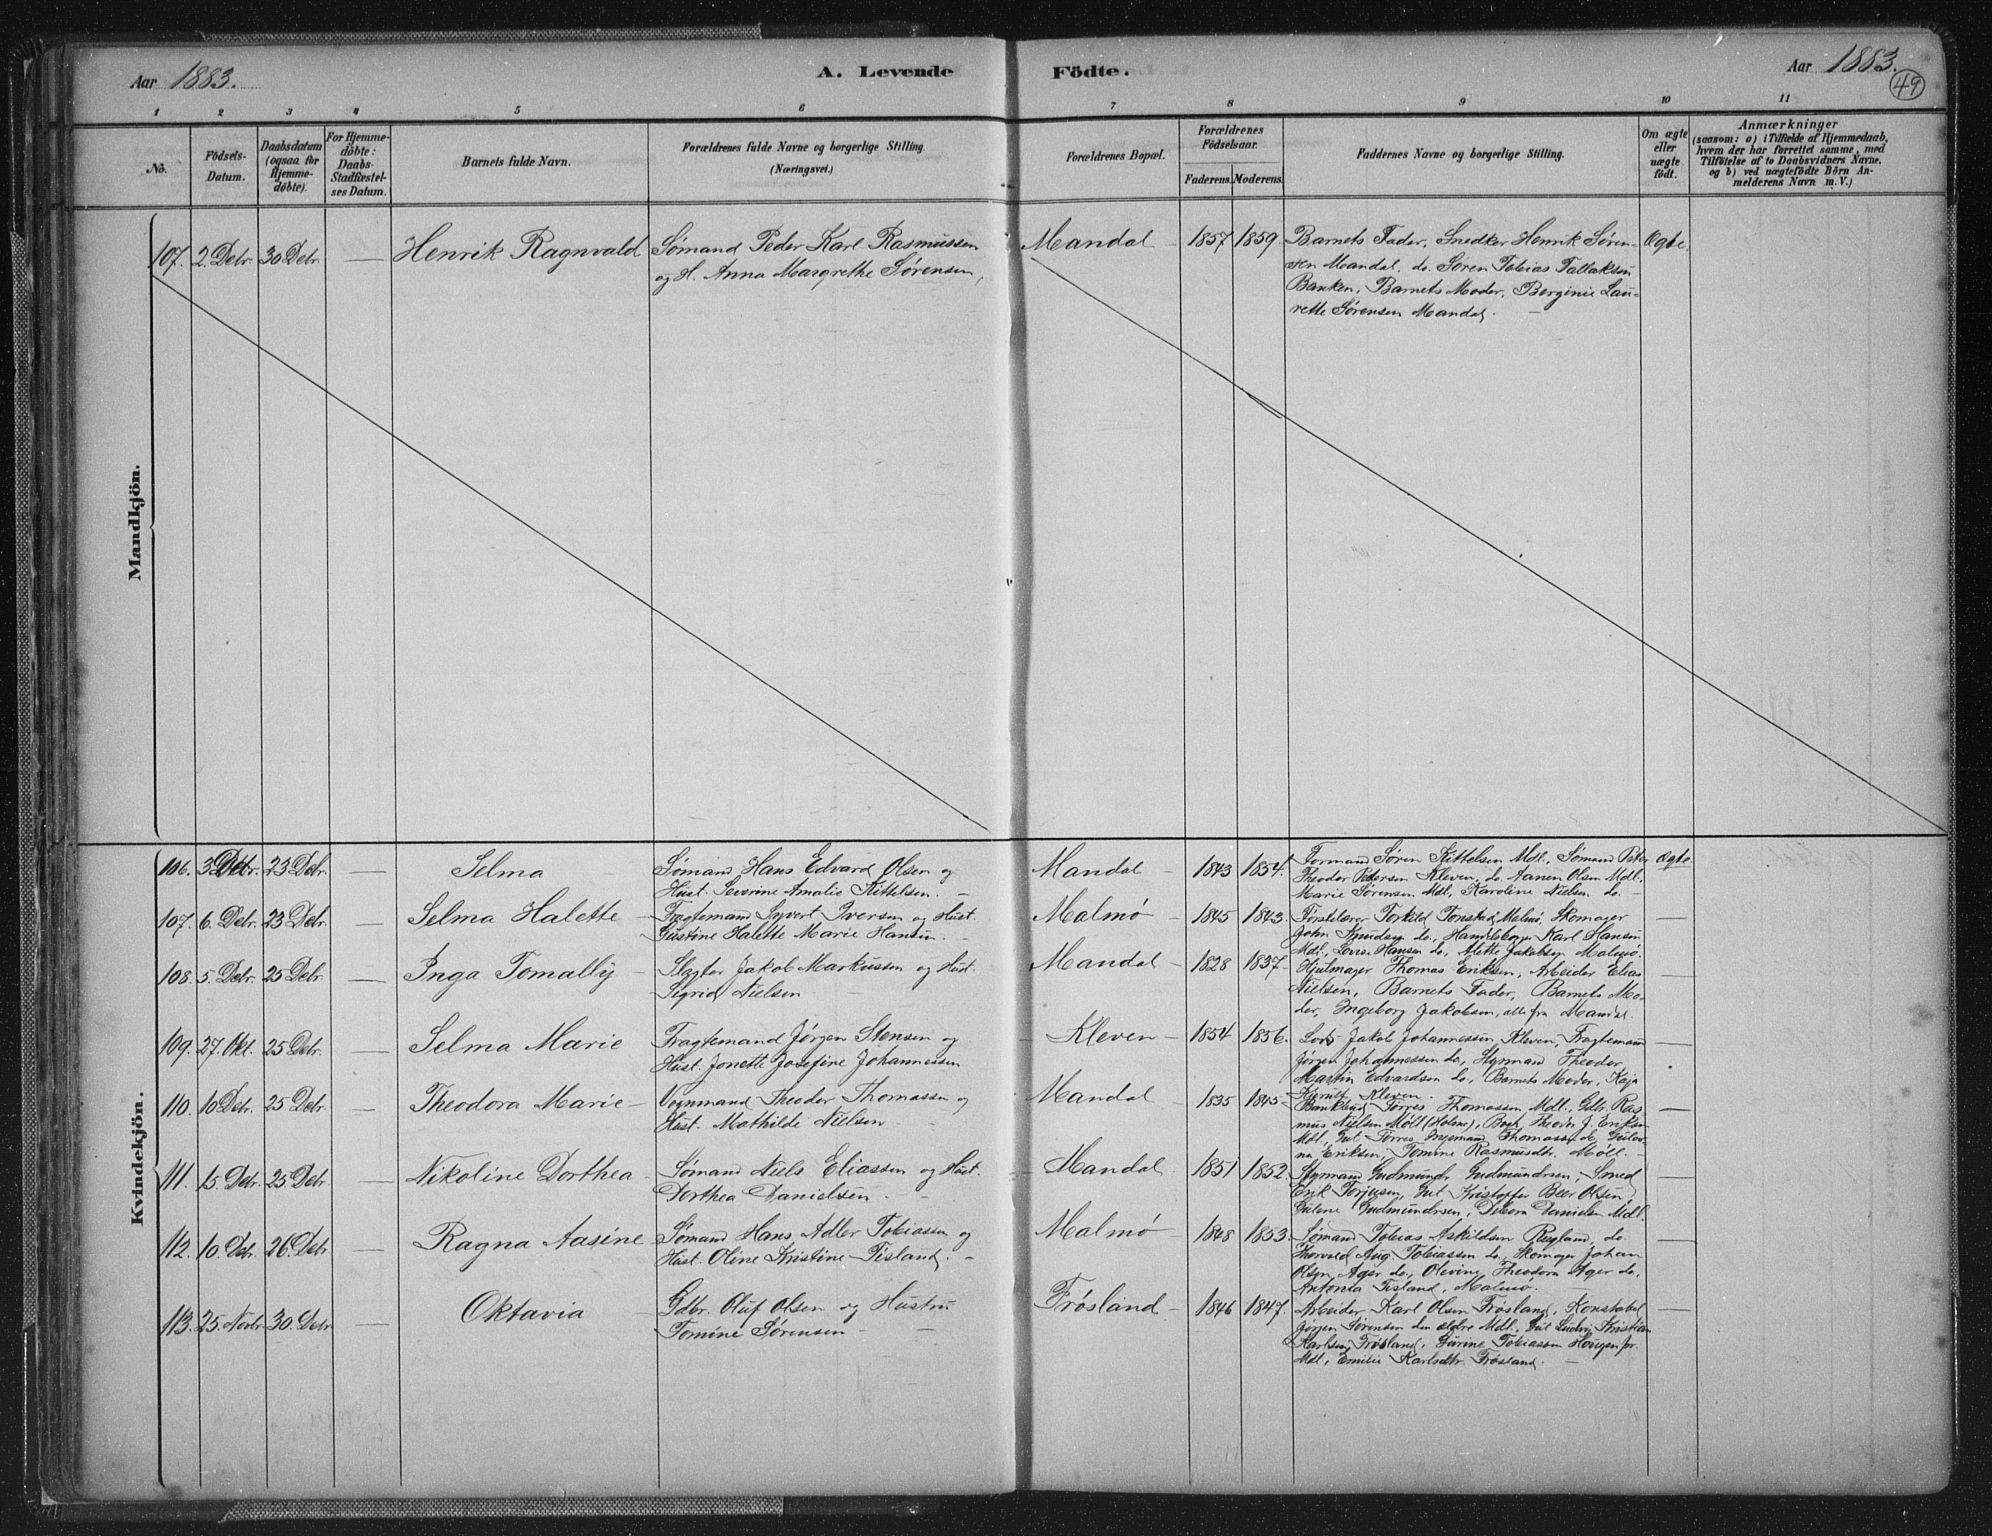 Aar 1883.
A. Levende Födte.
Aar 1883.
49
1 2 3 4 5 6 7 8 9 10 11
No.
Födsels-
Datum.
Daabsdatum
(ogsaa for
Hjemme-
döbte).
For Hjemme-
döbte:
Daabs-
Stadfæstel-
ses Datum.
Barnets fulde Navn.
Forældrenes fulde Navne og borgerlige Stilling.
(Næringsvei.)
Forældrenes Bopæl.
Forældrenes
Födselsaar.
Faderens. Moderens.
Faddernes Navne og borgerlige Stilling.
Om ægte
eller
uægte
födt.
Anmærkninger
(saasom: a) i Tilfælde af Hjemmedaab,
hvem der har forrettet samme, med
Tilföielse af to Daabsvidners Navne,
og b) ved uægtefödte Börn An-
melderens Navn m. V.)
Mandkjön.
107. 2. Debr. 30 Debr. — Henrik Ragnvald
Sømand Peder Karl Rasmussen
og H. Anna Margrethe Sørensen,
Mandal — 1857 1859
Barnets Fader, Snedker Henrik Søren-
sen Mandal, do. Søren Tobias Tallaksen
Banken, Barnets Moder, Berginie Lau-
rette Sørensen Mandal. —
Ægte.
Kvindekjön.
106. 3 Debr. 23 Debr. — Selma
Sømand Hans Edvard Olsen og
Hust. Severine Amalie Kittelsen. —
Mandal — 1843 1854.
Formand Søren Kittelsen Mdl., Sømand Peter
Theodor Petersen Kleven, do. Aanen Olsen Mdl.
Marie Sørensen Mdl., Karoline Nielsen do. —
Ægte.
107. 6. Debr. 23 Debr. — Selma Halette —
Fragtemand Syvert Iversen og Hust.
Gustine Halette Marie Hansen. —
Malmø — 1845 1843.
Førstelærer Torkild Tonstad Malmø, Skomager
John Knudsen do., Karl Hansen
Mdl., Hansen do., Alette Jakobsen, Malmø.
—
108. 5. Debr. 25 Debr. — Inga Tomally —
Slagter Jakob Markussen og Hust.
Sigrid Nielsen —
Mandal — 1828 1837 —
Hjulmager Thomas Eriksen, Arbeider Elias
Nielsen, Barnets Fader, Barnets Mo-
der, Ingeborg Jakobsen, alle fra Mandal.
—
109. 27. Okt. 25 Debr. — Selma Marie
Fragtemand Jørgen Stensen og
Hust. Jonette Josefine Johannessen
Kleven — 1854 1856.
Lods Jakob Johannessen Kleven, Fragtemann
Jørgen Johannessen do., Styrmand Theodor
Martin Edvardsen do., Barnets Moder, Kaja
Kleven. —
—
110. 10 Debr. 25 Debr. — Theodora Marie —
Vognmand Theodor Thomassen og
Hust. Mathilde Nielsen —
Mandal 1835 1845 —
Tørres Thomassen Mdl., Gdbr. Ras-
mus Nielsen Möll (Holme), Theodr. J. Eriksen
Mdl., Gut Tørres Thomassen do., Gusta-
va Eriksen, Tomine Rasmusdtr. Möll. —
—
111. 15. Debr. 25 Debr. — Nikoline Dorthea —
Sømand Niels Eliassen og Hust.
Dorthea Danielsen. —
Mandal 1851 1852.
Styrmand Gudmund Gudmundsen, Smed
Erik Torjusen, Gut Kristoffer Beer Olsen,
Gudmundsen, Debora Danielsen Mdl.
—
112. 10. Debr. 26 Debr. — Ragna Aasine
Sømand Hans Adler Tobiassen og
Hust. Oline Kristine Tisland. —
Malmø — 1848 1853.
Sømand Tobias Askildsen Rugland, do.
Thorvald Aug. Tobiassen do., Skomager Johan
Olsen Ager do., Olevine Theodora Ager do.
Antonia Tisland, Malmø. —
—
113. 25. Novbr. 30. Debr. — Oktavia
Gdbr. Oluf Olsen og Hustru
Tomine Sørensen —
Frøsland — 1846 1847.
Arbeider Karl Olsen Frøsland, Konstabel
Jørgen Sørensen den ældre Mdl., Gut Ludvig Kristian
Karlsen Frøsland, Gurine Tobiassen Hougen pr.
Mdl., Emilie Karlsdtr. Frøsland. —
—